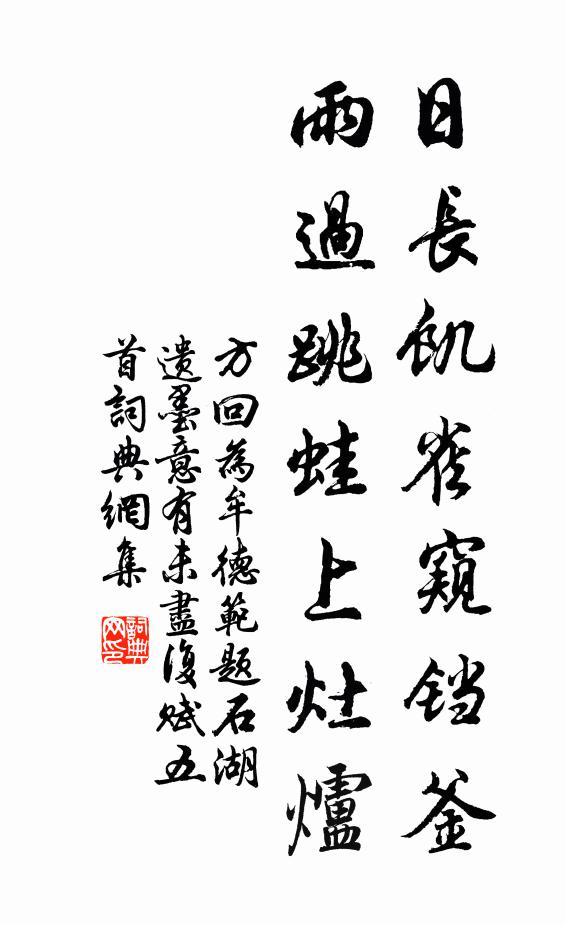 日長飢雀窺铛釜
雨過跳蛙上灶爐
方回為牟德範题石湖
遗墨意有未盡復赋五
首詞典網集
詞典网印